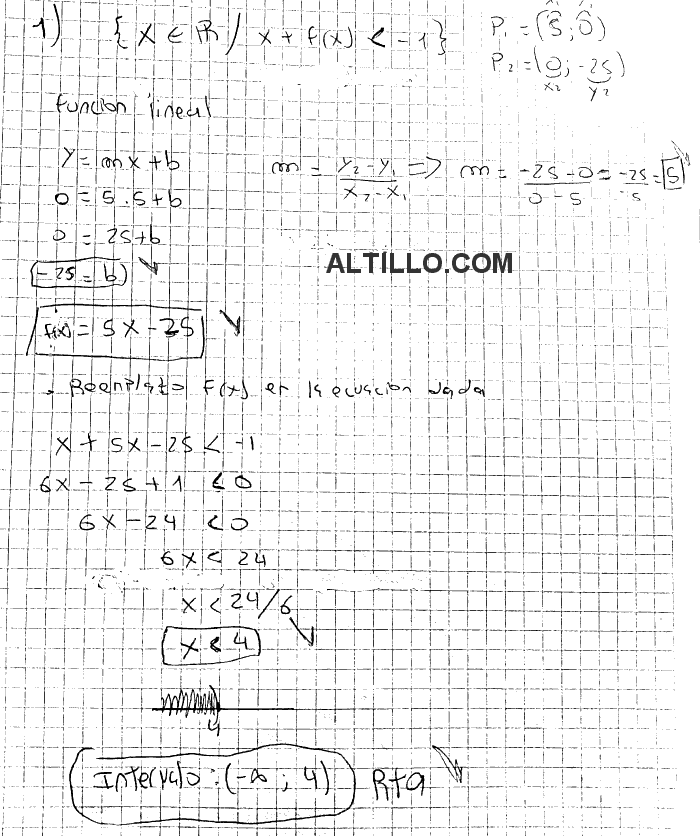 1) { x ∈ R / x + f(x) < -1}
P1 = (5; 0)
x1 y1
P2 = (0; -25)
x2 y2
función lineal
y = mx + b
m = y2 - y1 / x2 - x1 => m = -25 - 0 / 0 - 5 = -25 / -5 = 5
0 = 5.5 + b
0 = 25 + b
-25 = b
ALTILLO.COM
f(x) = 5x - 25
. Reemplazo f(x) en la ecuación dada
x + 5x - 25 < -1
6x - 25 + 1 < 0
6x - 24 < 0
6x < 24
x < 24/6
x < 4
4
Intervalo: (-∞ ; 4) Rta